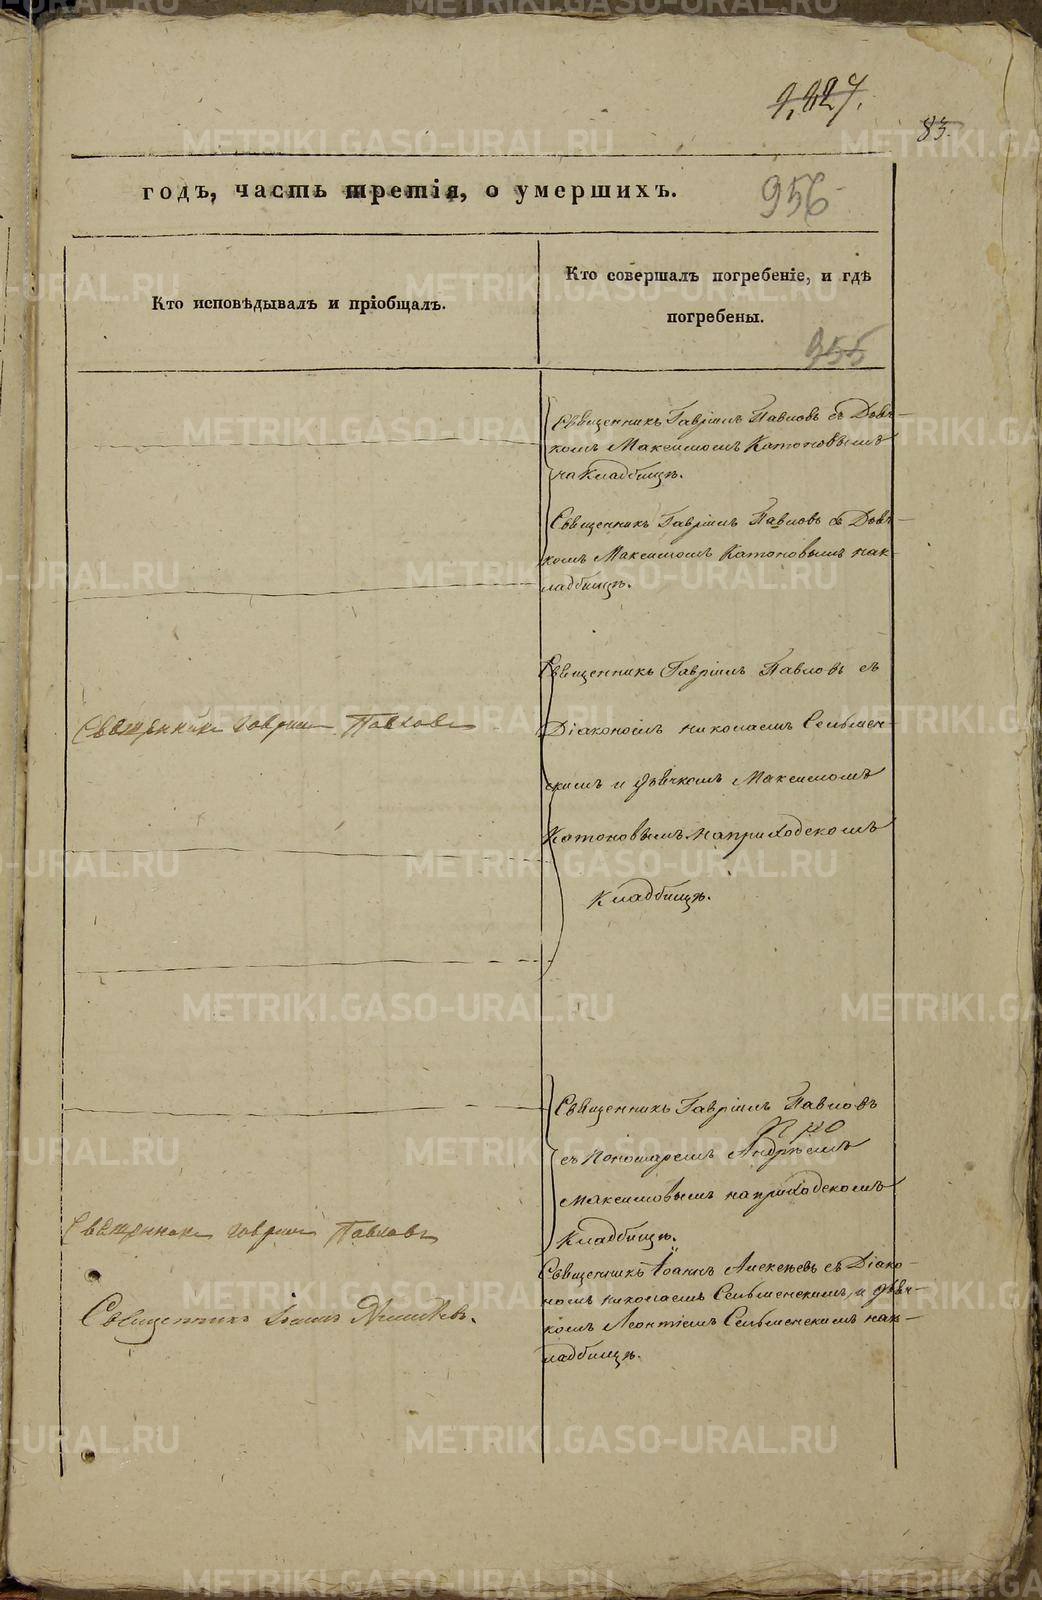 1,427.
83.
годъ, часть третія, о умершихъ.
956
Кто исповѣдывалъ и пріобщалъ.
Кто совершалъ погребеніе, и гдѣ
погребены.
355
Священникъ Гавріилъ Павловъ съ Дьяч-
комъ Максимомъ Катоновымъ
на Кладбищѣ.
Священникъ Гавріилъ Павловъ съ Дьяч-
комъ Максимомъ Катоновымъ нак-
ладбищѣ.
Священникъ Гавріилъ Павловъ съ
Священникъ Гавріилъ Павловъ
Діакономъ николаемъ Сельмен-
скимъ и дьячкомъ Максимомъ
Катоновымъ наприходскомъ
Кладбищѣ.
Священникъ Гавріилъ Павловъ
съ Пономаремъ Андрѣемъ
Максимовымъ наприходскомъ
Кладбищѣ.
Священникъ Гавріилъ Павловъ
Священникъ Іоаннъ Алексѣевъ съ Діако-
номъ николаемъ Сельменскимъ, и дьяч-
комъ Леонтіемъ Сельменскимъ нак-
ладбищѣ.
Священникъ Іоаннъ
METRIKI.GASO-URAL.RU